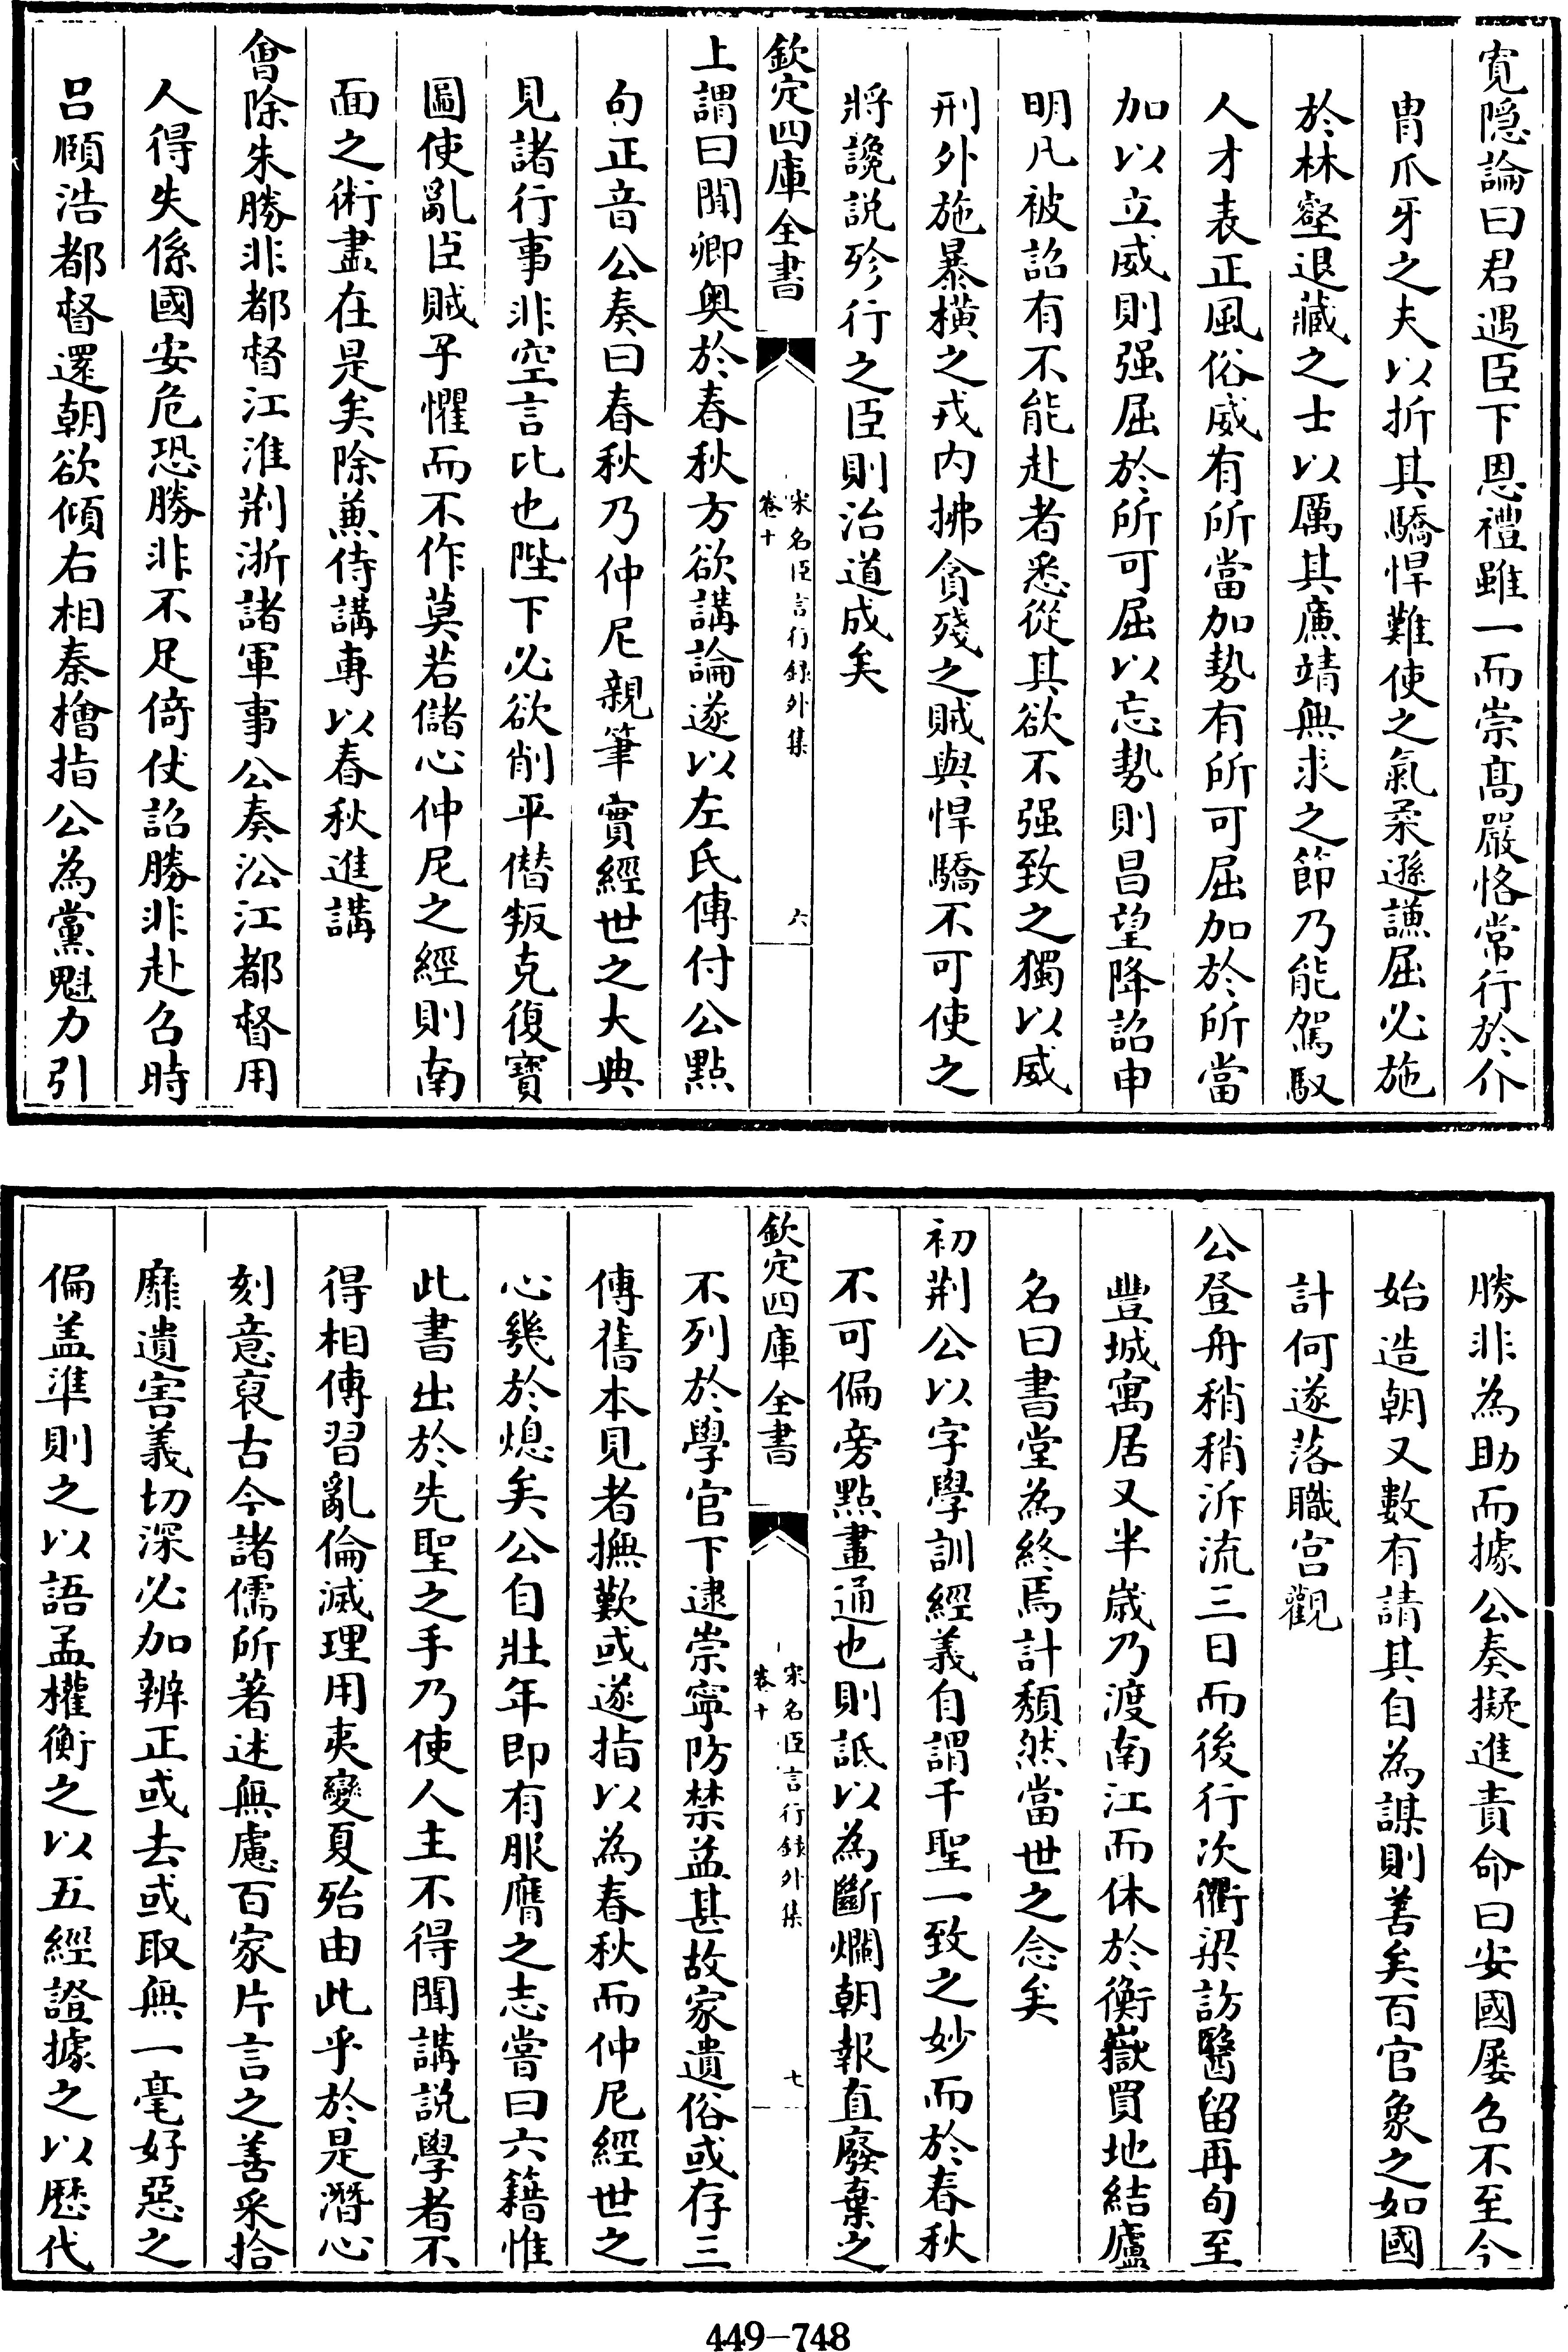 寛隠論曰君遇臣下恩禮雖一而崇髙嚴恪常行於介
胄爪牙之夫以折其驕悍難使之氣柔遜謙屈必施
於林壑退藏之士以厲其亷靖無求之節乃能駕馭
人才表正風俗威有所當加勢有所可屈加於所當
加以立威則强屈於所可屈以忘勢則昌望降詔申
明凡被詔有不能赴者悉從其欲不强致之獨以威
刑外施暴橫之戎内拂貪殘之賊與悍驕不可使之
將讒説殄行之臣則治道成矣
欽定四庫全書
宋名臣言行録外集
卷十
六
上謂曰聞卿奥於春秋方欲講論遂以左氏傳付公點
句正音公奏曰春秋乃仲尼親筆實經世之大典
見諸行事非空言比也陛下必欲削平僭叛克復寳
圖使亂臣賊子懼而不作莫若儲心仲尼之經則南
面之術盡在是矣除兼侍講專以春秋進講
會除朱勝非都督江淮荆浙諸軍事公奏㳂江都督用
人得失係國安危恐勝非不足倚仗詔勝非赴召時
吕頤浩都督還朝欲傾右相秦檜指公為黨魁力引
勝非為助而據公奏擬進責命曰安國屡召不至今
始造朝又數有請其自為謀則善矣百官象之如國
計何遂落職宫觀
公登舟稍稍泝流三日而後行次衢梁訪醫留再旬至
豐城寓居又半嵗乃渡南江而休於衡嶽買地結廬
名曰書堂為終焉計頽然當世之念矣
初荆公以字學訓經義自謂千聖一致之妙而於春秋
不可偏旁點畫通也則詆以為斷爛朝報直廢棄之
欽定四庫全書
宋名臣言行録外集
卷十
七
不列於學官下逮崇寧防禁益甚故家遺俗或存三
傳舊本見者撫歎或遂指以為春秋而仲尼經世之
心幾於熄矣公自壯年即有服膺之志嘗曰六籍惟
此書出於先聖之手乃使人主不得聞講説學者不
得相傳習亂倫滅理用夷變夏殆由此乎於是潛心
刻意裒古今諸儒所著述無慮百家片言之善采拾
靡遺害義切深必加辨正或去或取無一毫好惡之
偏盖準則之以語孟權衡之以五經證據之以歴代
449-748